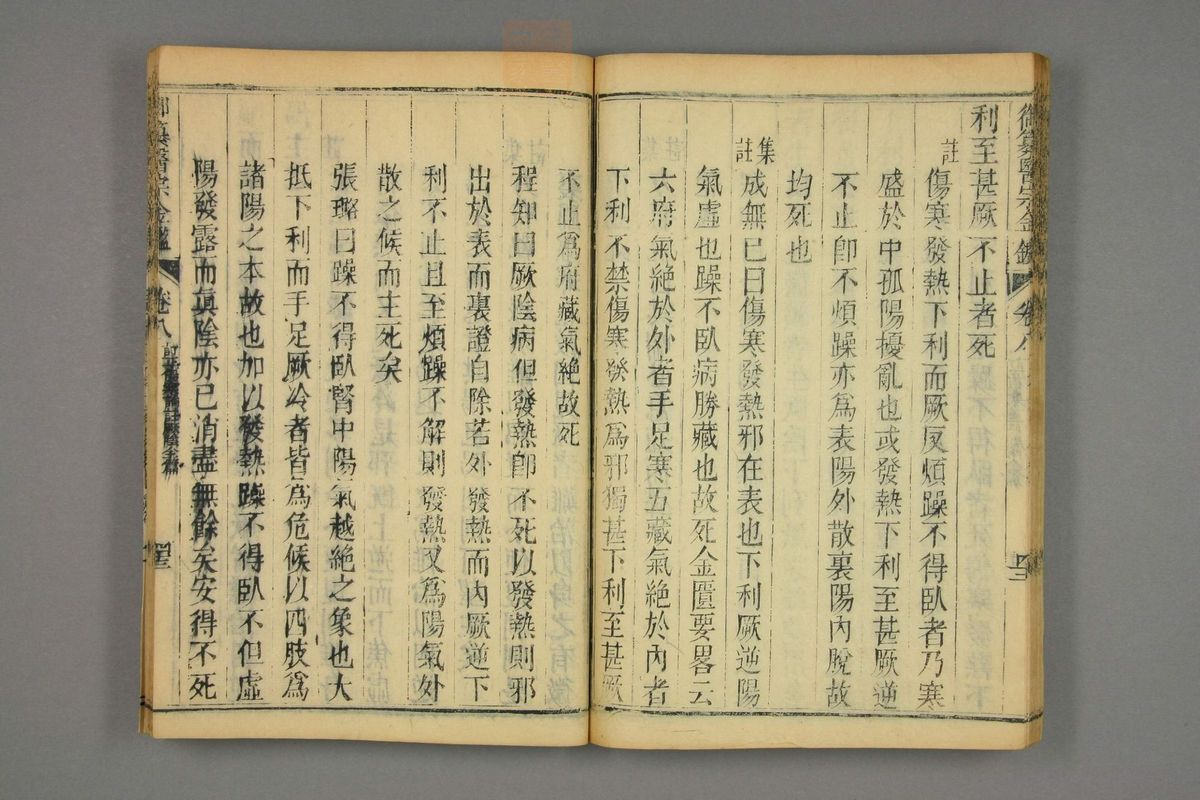 御纂醫宗金鑑 卷八
利至甚厥不止者死
註 傷寒發熱下利而厥反煩躁不得臥者乃寒
盛於中孤陽擾亂也或發熱下利至甚厥逆
不止卽不煩躁亦爲表陽外散裏陽內脫故
均死也
集註 成無已曰傷寒發熱邪在表也下利厥逆陽
氣虛也躁不臥病勝藏也故死金匱要畧云
六府氣絕於外者手足寒五藏氣絕於內者
下利不禁傷寒發熱爲邪獨甚下利至甚厥
不止爲府藏氣絕故死
程知曰厥陰病但發熱卽不死以發熱則邪
出於表而裏證自除若外發熱而內厥逆下
利不止且至煩躁不解則發熱又爲陽氣外
散之候而主死矣
張璐曰躁不得臥腎中陽氣越絕之象也大
抵下利而手足厥冷者皆爲危候以四肢爲
諸陽之本故也加以發熱躁不得臥不但虛
陽發露而眞陰亦已消盡無餘矣安得不死
御纂醫宗金鑑 卷八